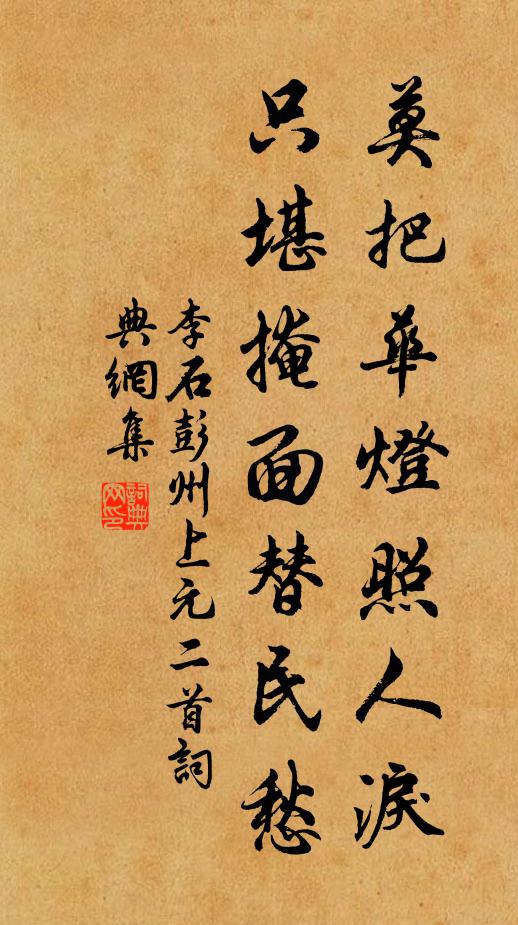 莫把華燈照人淚
只堪掩面替民愁
李石彭州上元二首詞
典網集
詞典網印